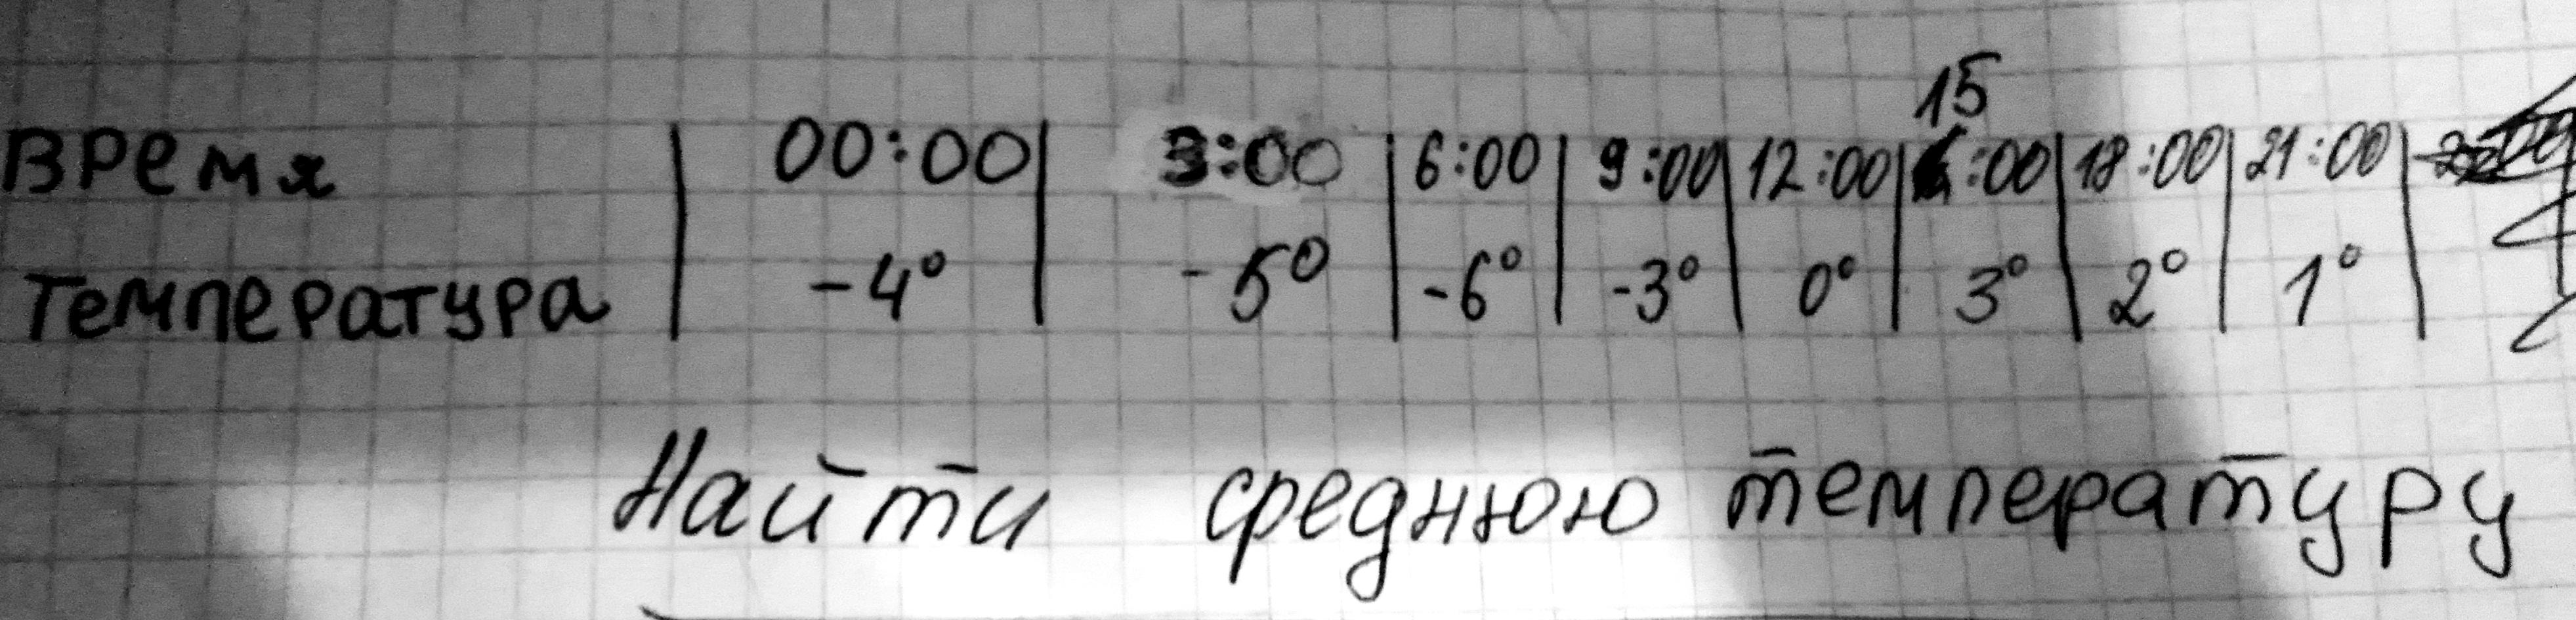 Время | 00:00 | 3:00 | 6:00 | 9:00 | 12:00 | 15:00 | 18:00 | 21:00 |
Температура | -4° | -5° | -6° | -3° | 0° | 3° | 2° | 1° |
Найти среднюю температуру